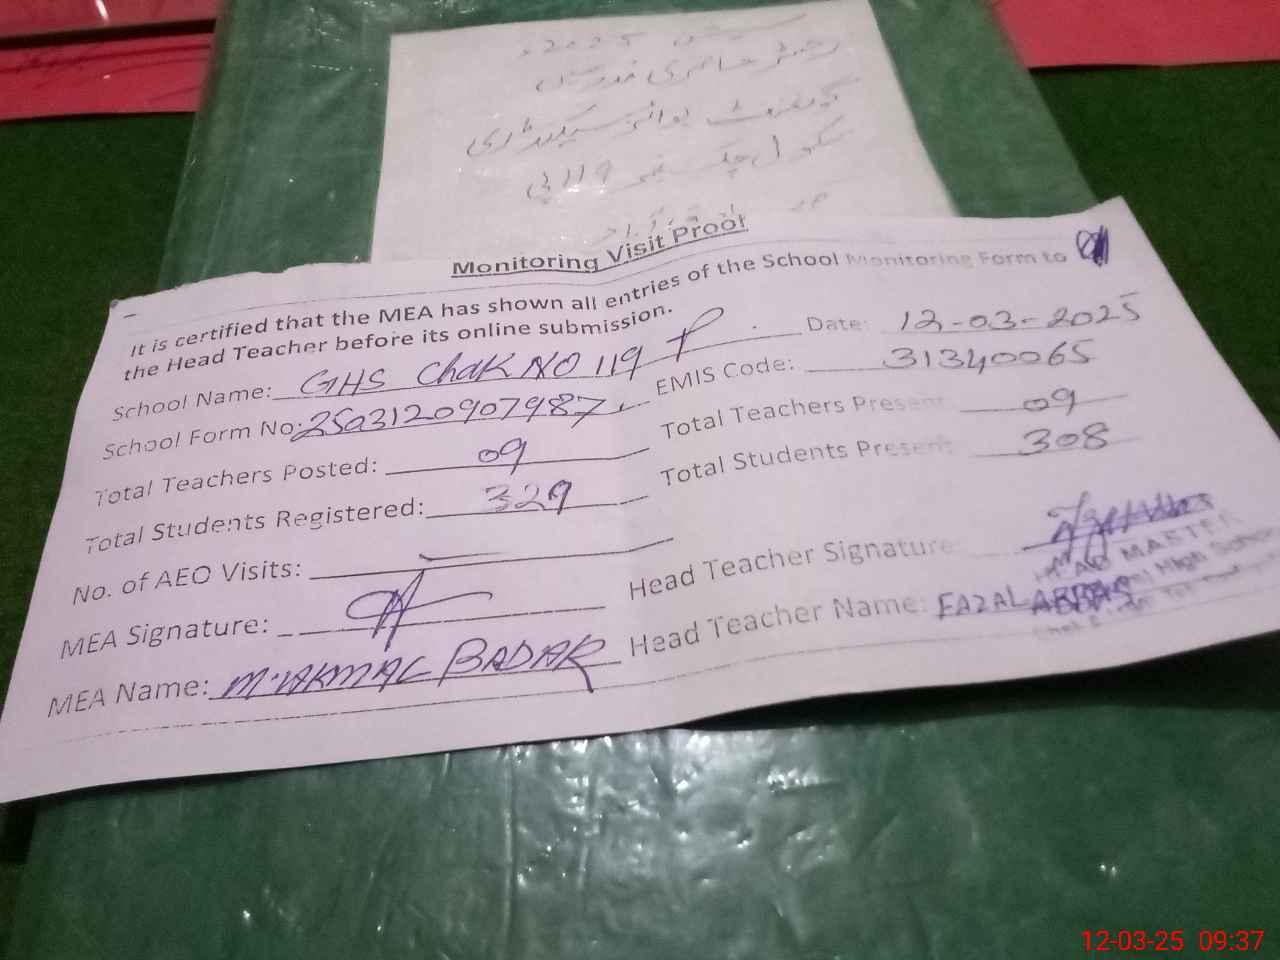 سیشن 2025ء
رجسٹر حاضری مدرسین
گورنمنٹ بوائز سیکنڈری
سکول چک نمبر 119 پی
Monitoring Visit Proof
It is certified that the MEA has shown all entries of the School Monitoring Form to
the Head Teacher before its online submission.
School Name: GHS Chak NO 119 P Date: 12-03-2025
School Form No: 2503120907987 EMIS Code: 31340065
Total Teachers Posted: 09 Total Teachers Present: 09
Total Students Registered: 329 Total Students Present: 308
No. of AEO Visits:
MEA Signature: Head Teacher Signature:
HEAD MASTER
High School
MEA Name: M. AKMAL BADAR Head Teacher Name: FAZAL ABBAS
12-03-25 09:37